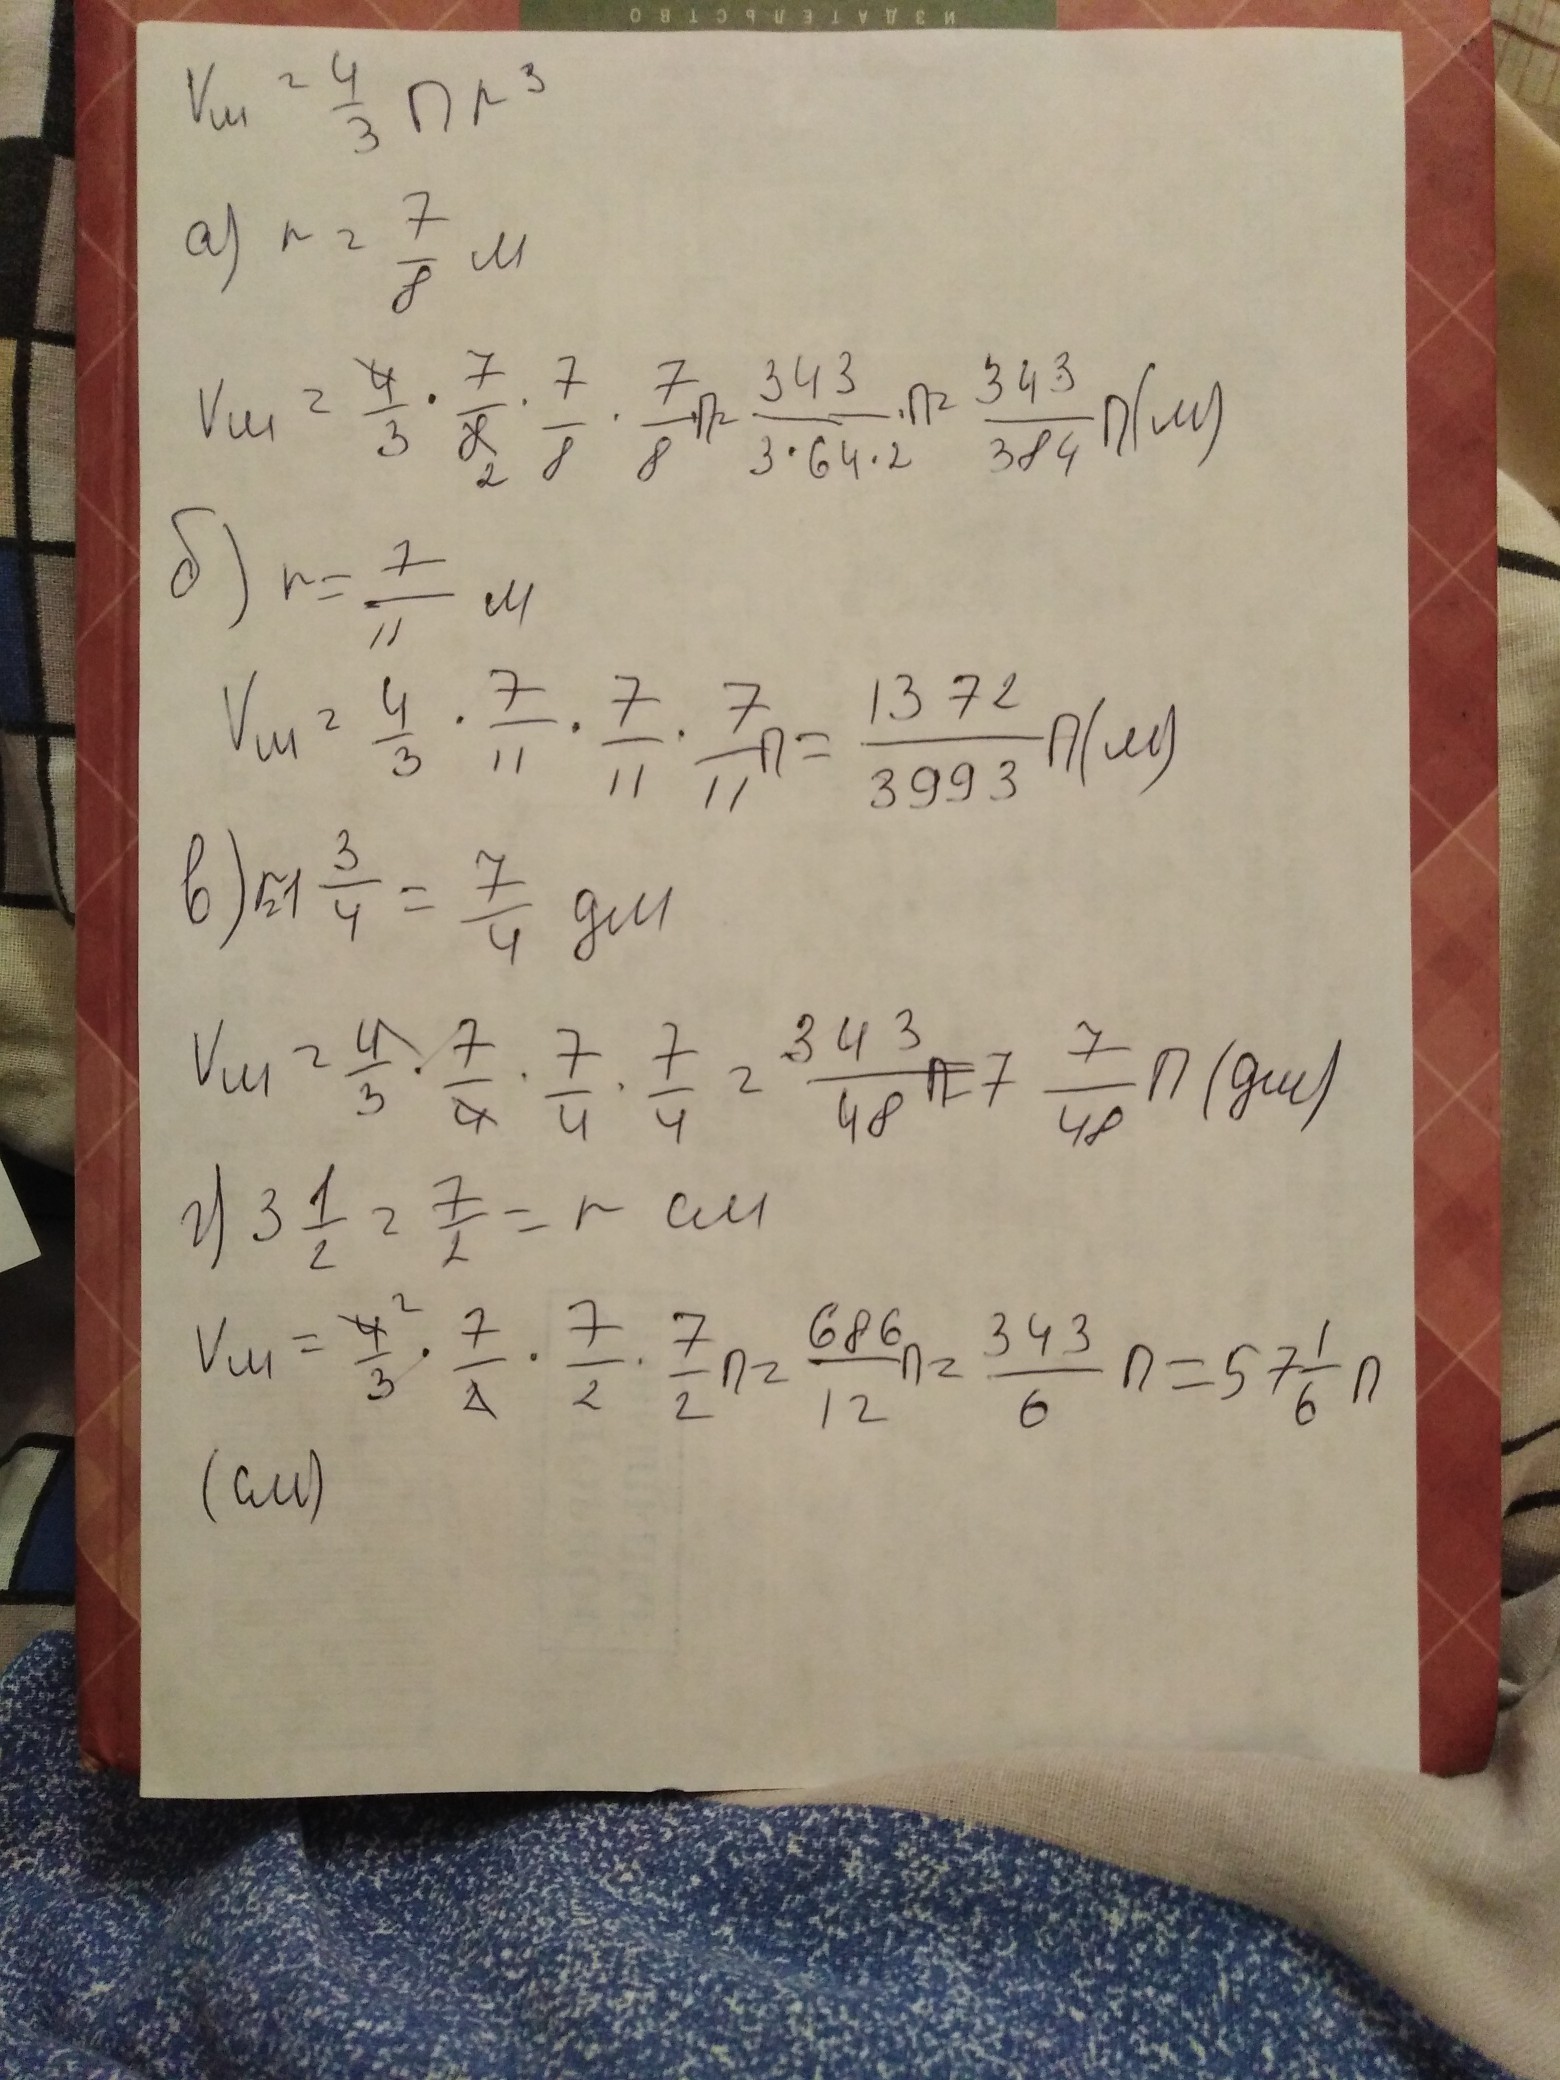 ИЗДАТЕЛЬСТВО
Vш = 4/3 П r³
а) r = 7/8 м
Vш = 4/3 · 7/8 2 · 7/8 · 7/8 П = 343/(3·64·2) · П = 343/384 П (м)
б) r = 7/11 м
Vш = 4/3 · 7/11 · 7/11 · 7/11 П = 1372/3993 П (м)
в) r=1 3/4 = 7/4 дм
Vш = 4/3 · 7/4 · 7/4 · 7/4 = 343/48 П = 7 7/48 П (дм)
г) 3 1/2 = 7/2 = r см
Vш = 4²/3 · 7/2 · 7/2 · 7/2 П = 686/12 П = 343/6 П = 57 1/6 П
(см)